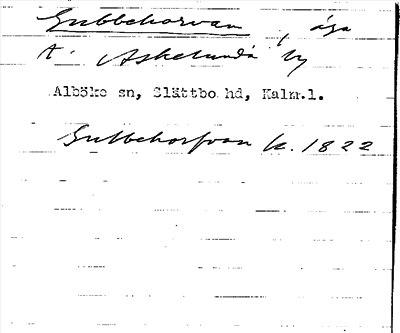 Gubbehorvan, äga
t. Askelunda by
Alböke sn, Slättbo hd, Kalm.l.
Gubbehorfvan k. 1822